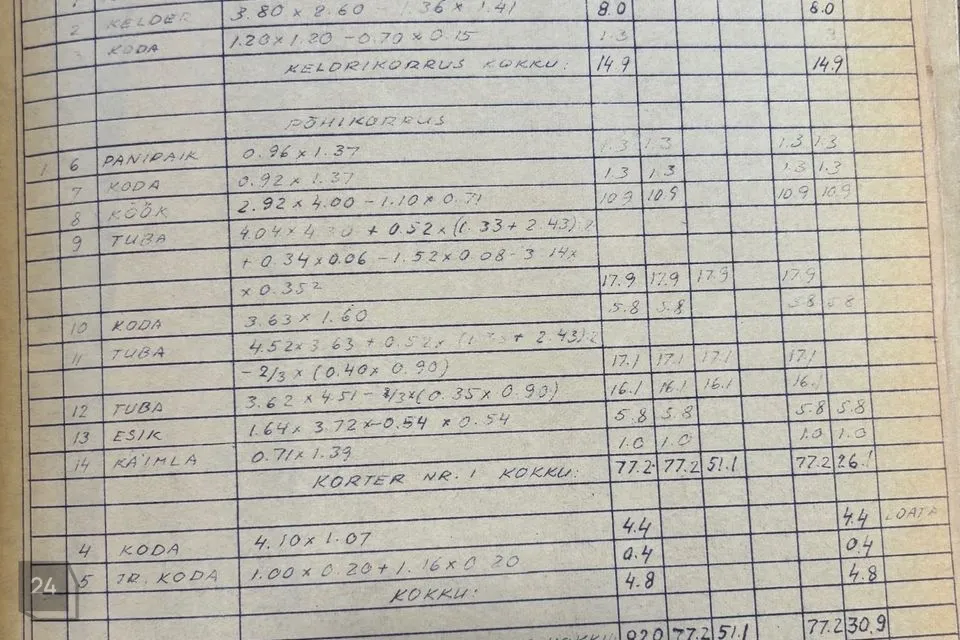 2 KELDER 3.80 x 2.60 - 1.36 x 1.41 8.0 8.0
3 KODA 1.20 x 1.20 - 0.70 x 0.15 1.3 3
KELDRIKORRUS KOKKU: 14.9 14.9
PÕHIKORRUS
1 6 PANIPAIK 0.96 x 1.37 1.3 1.3 1.3 1.3
7 KODA 0.92 x 1.37 1.3 1.3 1.3 1.3
8 KÖÖK 2.92 x 4.00 - 1.10 x 0.71 10.9 10.9 10.9 10.9
9 TUBA 4.04 x + 0.52 x (1.33 + 2.43):2
+ 0.34 x 0.06 - 1.52 x 0.08 - 3.14 x
x 0.35² 17.9 17.9 17.9 17.9
10 KODA 3.63 x 1.60 5.8 5.8 5.8 5.8
11 TUBA 4.52 x 3.63 + 0.52 x + 2.43):2
- 2/3 x (0.40 x 0.90) 17.1 17.1 17.1 17.1
12 TUBA 3.62 x 4.51 - 2/3 x (0.35 x 0.90) 16.1 16.1 16.1 16.1
13 ESIK 1.64 x 3.72 x - 0.54 x 0.54 5.8 5.8 5.8 5.8
14 KÄIMLA 0.71 x 1.39 1.0 1.0 1.0 1.0
KORTER NR. 1 KOKKU: 77.2 77.2 51.1 77.2 26.1
4 KODA 4.10 x 1.07 4.4 4.4
5 TR. KODA 1.00 x 0.20 + 1.16 x 0.20 0.4 0.4
KOKKU: 4.8 4.8
KOKKU: 82.0 77.2 51.1 77.2 30.9
24